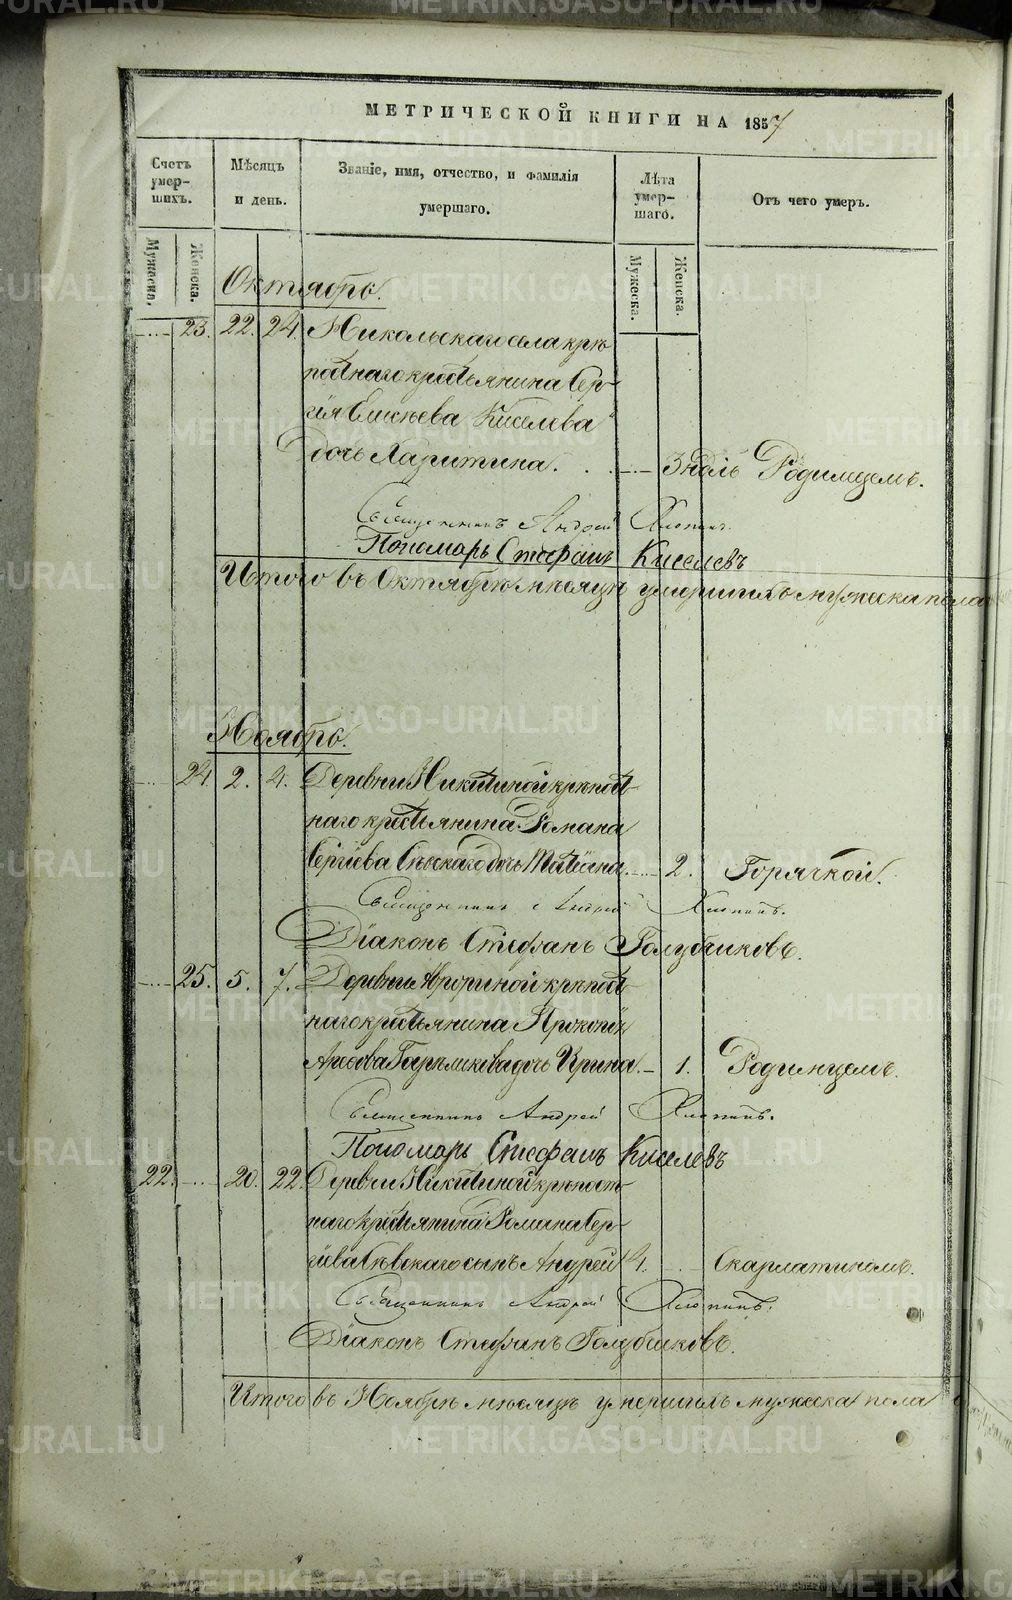 МЕТРИЧЕСКОЙ КНИГИ НА 1857
Счетъ умершихъ.
Мѣсяцъ и день.
Званіе, имя, отчество, и фамилія умершаго.
Лѣта умершаго.
Отъ чего умеръ.
Мужеска. Женска.
Мужеска. Женска.
Октябрь.
23. 22. 24. Никольскаго села крѣ-
постнаго крестьянина Сер-
гія Киселева
дочь Харитина. 3 нѣдль Родимцемъ.
Священникъ Андрей Хлопинъ.
Пономарь Стефанъ Киселевъ
Итого въ Октябрѣ мѣсяцѣ умершихъ мужеска пола
Ноябрь.
24. 2. 4. Деревни Никитиной крѣпост-
наго крестьянина Романа
Сергіева дочь Татіана. 2. Горячкой.
Священникъ Андрей Хлопинъ.
Діаконъ Стефанъ Голубчиковъ.
25. 5. 7. Деревни крѣпост-
наго крестьянина Прокопія
дочь Ирина. 1. Родимцемъ.
Священникъ Андрей Хлопинъ.
Пономарь Стефанъ Киселевъ
22. 20. 22. Деревни Никитиной крѣпост-
наго крестьянина Романа Сер-
гіева сынъ Андрей 4. Скарлатиномъ.
Священникъ Андрей Хлопинъ.
Діаконъ Стефанъ Голубчиковъ.
Итого въ Ноябрѣ мѣсяцѣ умершихъ мужеска пола
METRIKI.GASO-URAL.RU